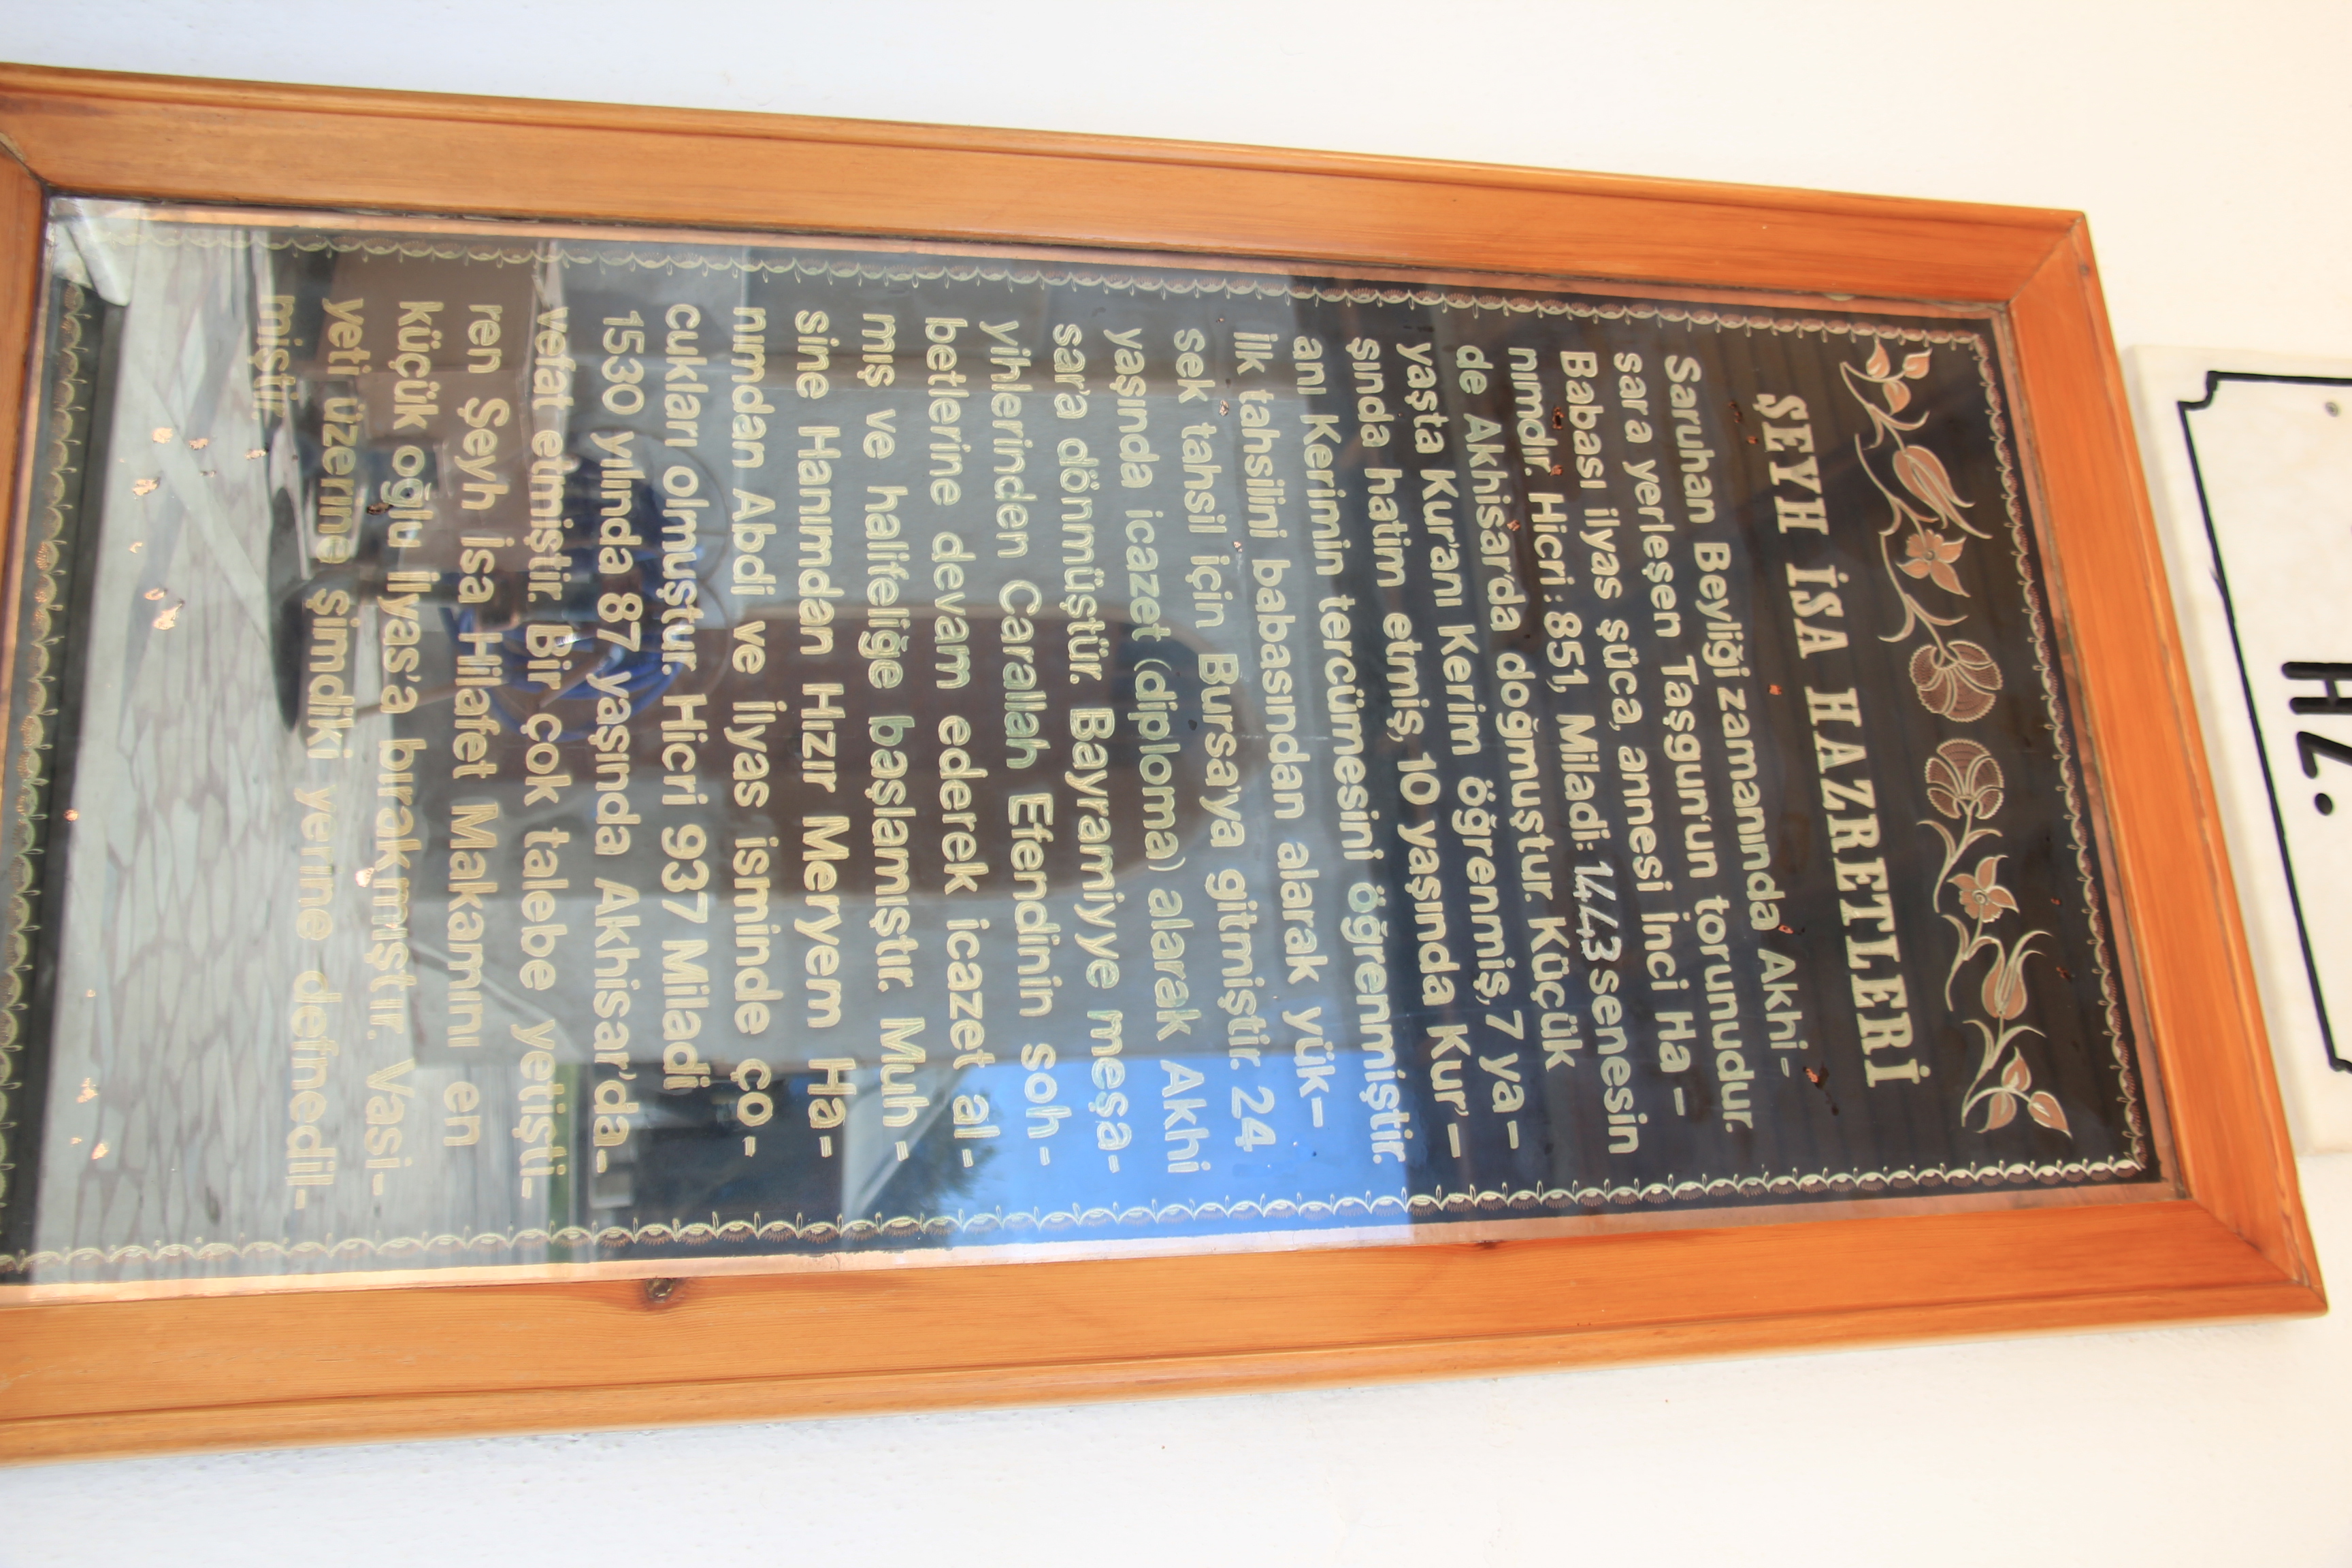 ŞEYH İSA HAZRETLERİ
Saruhan Beyliği zamanında Akhi-
sara yerleşen Taşgun'un torunudur.
Babası İlyas şüca, annesi İnci Ha-
nımdır. Hicri: 851, Miladi: 1443 senesin
de Akhisar'da doğmuştur. Küçük
yaşta Kur'anı Kerim öğrenmiş, 7 ya-
şında hatim etmiş, 10 yaşında Kur'-
anı Kerimin tercümesini öğrenmiştir.
İlk tahsilini babasından alarak yük-
sek tahsil için Bursa'ya gitmiştir. 24
yaşında icazet (diploma) alarak Akhi
sar'a dönmüştür. Bayramiyye meşa-
yihlerinden Carallah Efendinin soh-
betlerine devam ederek icazet al-
mış ve halifeliğe başlamıştır. Muh-
sine Hanımdan Hızır Meryem Ha-
nımdan Abdi ve İlyas isminde ço-
cukları olmuştur. Hicri 937 Miladi
1530 yılında 87 yaşında Akhisar'da-
vefat etmiştir. Bir çok talebe yetişti-
ren Şeyh İsa Hilafet Makamını en
küçük oğlu İlyas'a bırakmıştır. Vasi-
yeti üzerine şimdiki yerine defnedil-
miştir.
HZ.